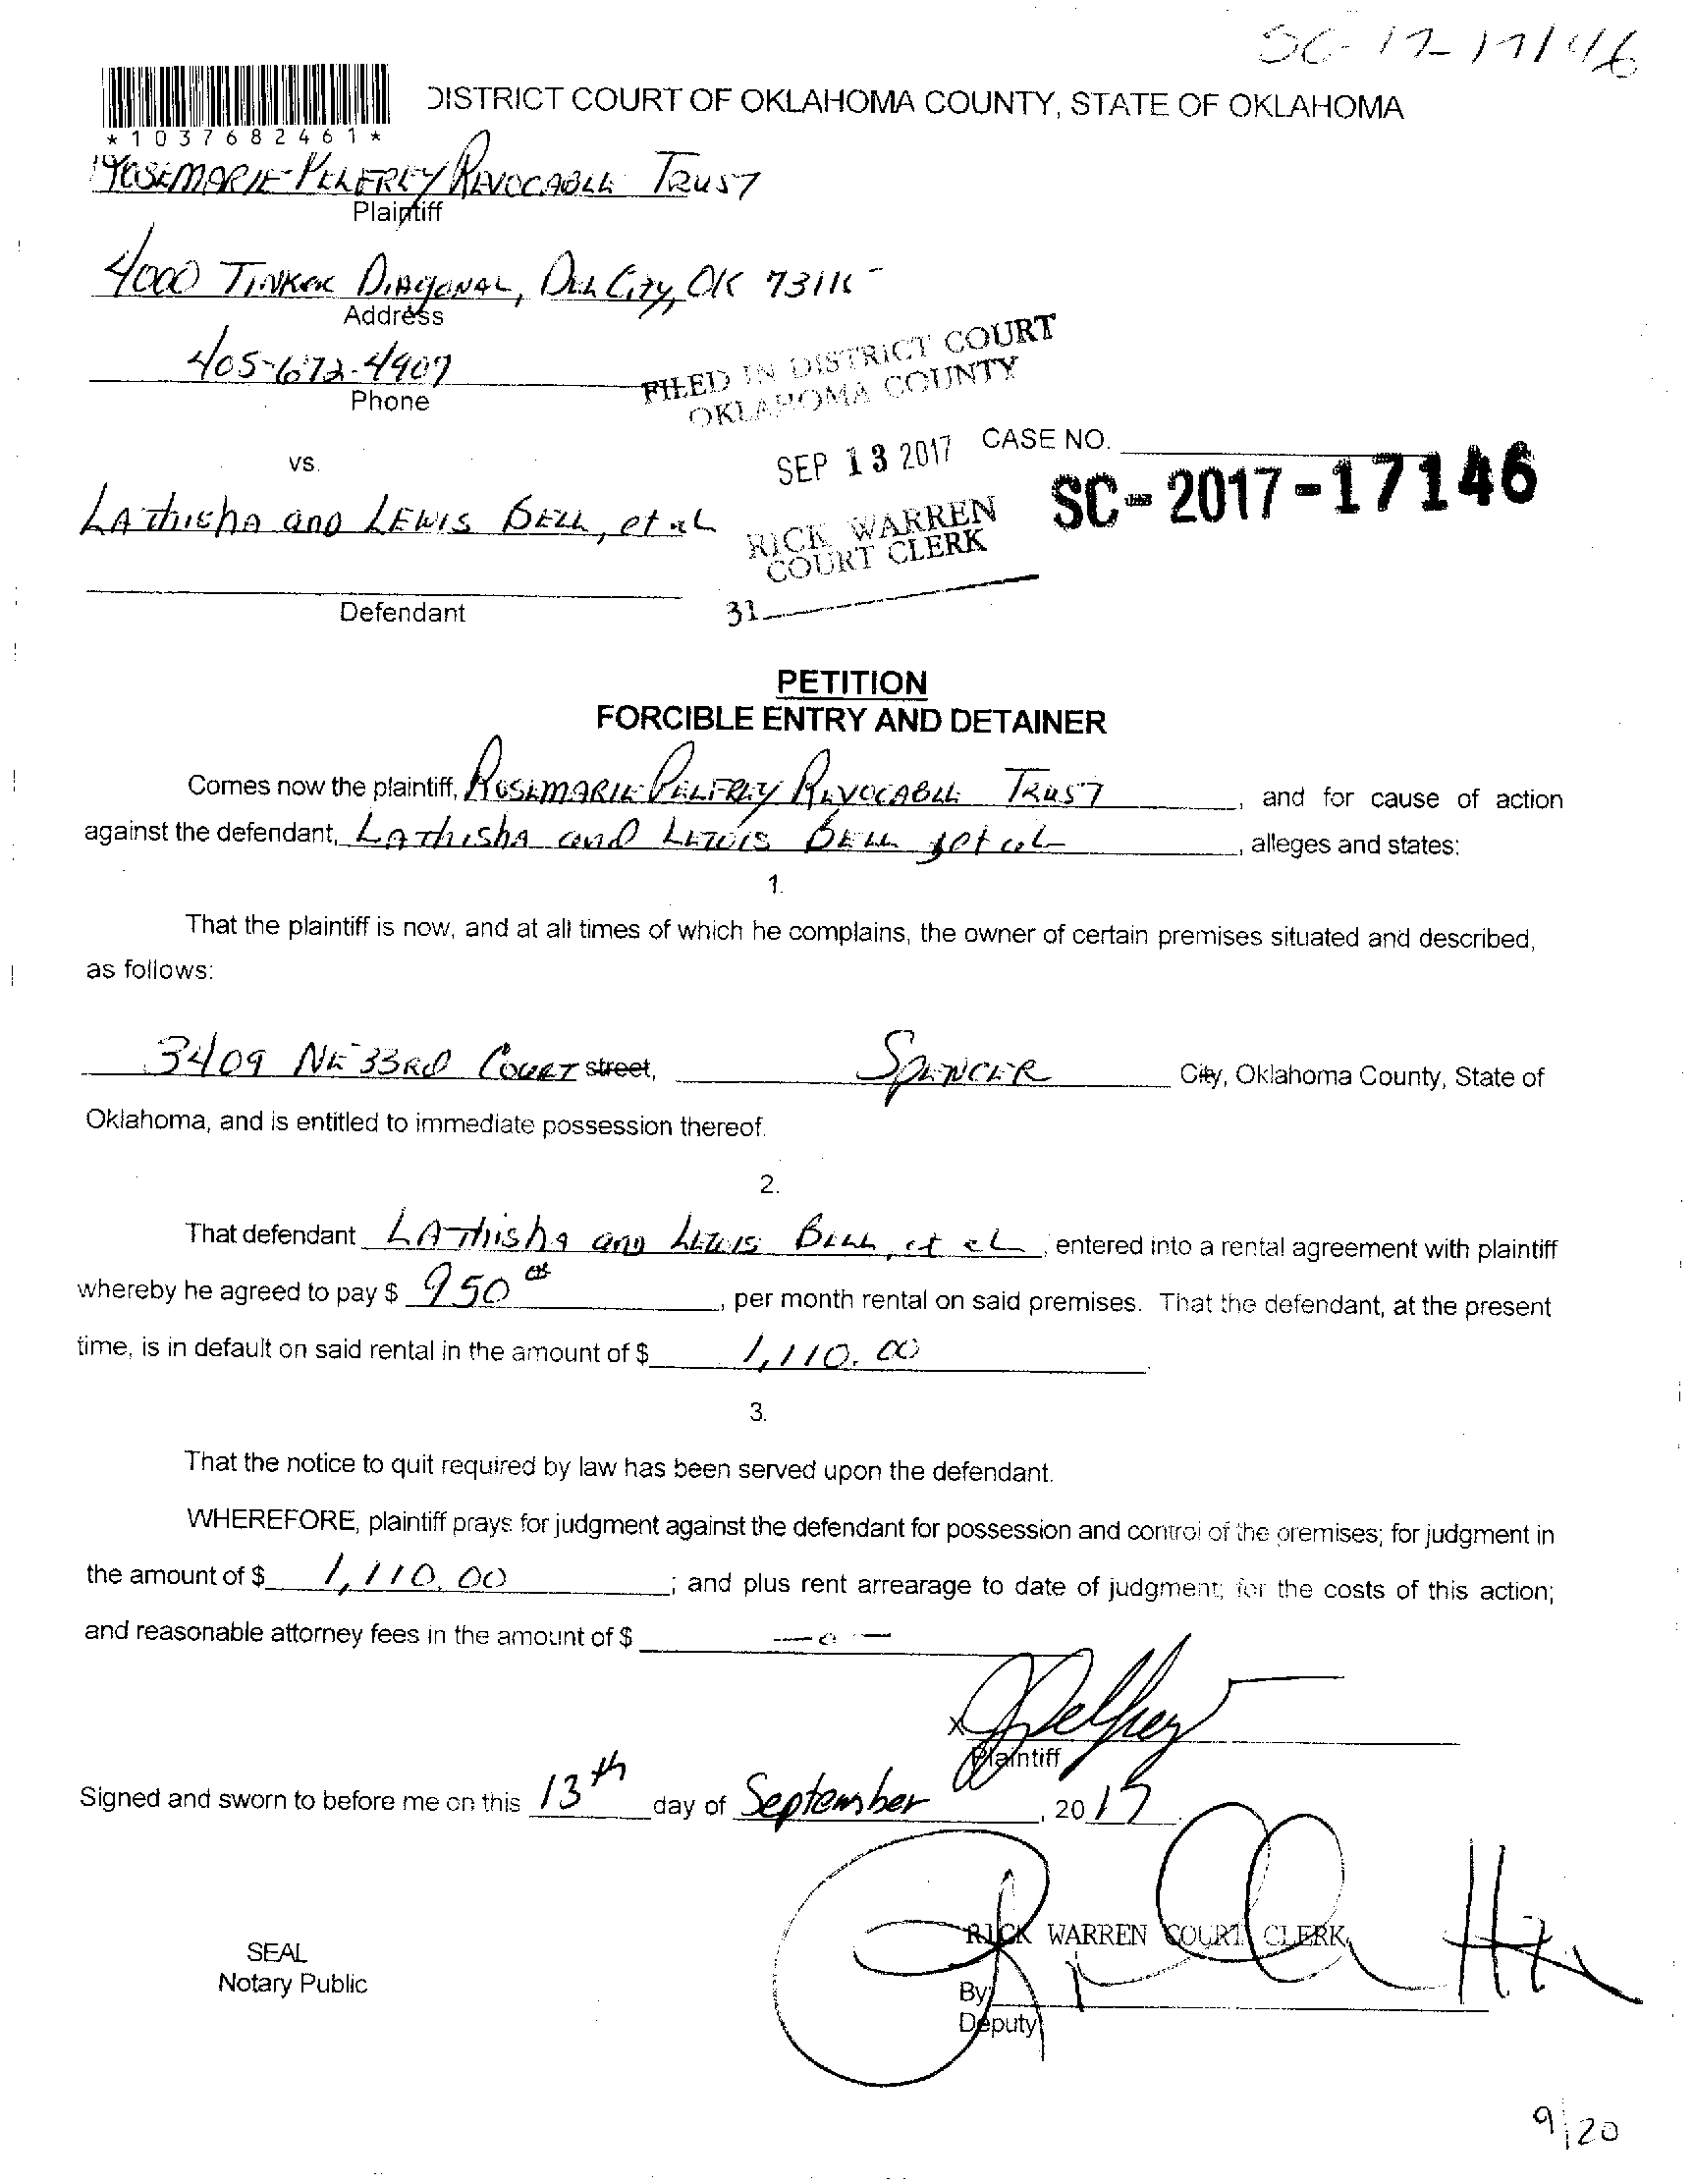 SC-17-17146
DISTRICT COURT OF OKLAHOMA COUNTY, STATE OF OKLAHOMA
*1037682461*
ROSEMARIE PELFREY REVOCABLE TRUST
Plaintiff
4000 TINKER DIAGONAL, DEL CITY, OK 73115
Address
405-672-4907
Phone
FILED IN DISTRICT COURT
OKLAHOMA COUNTY
SEP 13 2017 CASE NO.
SC-2017-17146
vs.
LATHISHA and LEWIS BELL, et al
RICK WARREN
COURT CLERK
31
Defendant
PETITION
FORCIBLE ENTRY AND DETAINER
Comes now the plaintiff, ROSEMARIE PELFREY REVOCABLE TRUST, and for cause of action
against the defendant, LATHISHA and LEWIS BELL et al, alleges and states:
1.
That the plaintiff is now, and at all times of which he complains, the owner of certain premises situated and described,
as follows:
3409 NE 33RD COURT street, SPENCER City, Oklahoma County, State of
Oklahoma, and is entitled to immediate possession thereof.
2.
That defendant LATHISHA and LEWIS BELL, et al, entered into a rental agreement with plaintiff
whereby he agreed to pay $ 950 00, per month rental on said premises. That the defendant, at the present
time, is in default on said rental in the amount of $ 1,110.00
3.
That the notice to quit required by law has been served upon the defendant.
WHEREFORE, plaintiff prays for judgment against the defendant for possession and control of the premises; for judgment in
the amount of $ 1,110.00; and plus rent arrearage to date of judgment; for the costs of this action;
and reasonable attorney fees in the amount of $ -0-
x JPelfrey
Plaintiff
Signed and sworn to before me on this 13th day of September, 2017
RICK WARREN COURT CLERK
SEAL
Notary Public
By
Deputy
9/20